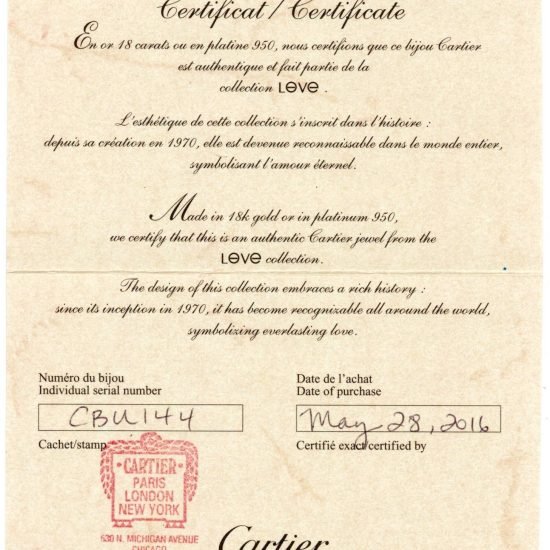 Certificat / Certificate
En or 18 carats ou en platine 950, nous certifions que ce bijou Cartier
est authentique et fait partie de la
collection LOVE .
L'esthétique de cette collection s'inscrit dans l'histoire :
depuis sa création en 1970, elle est devenue reconnaissable dans le monde entier,
symbolisant l'amour éternel.
Made in 18k gold or in platinum 950,
we certify that this is an authentic Cartier jewel from the
LOVE collection.
The design of this collection embraces a rich history :
since its inception in 1970, it has become recognizable all around the world,
symbolizing everlasting love.
Numéro du bijou
Individual serial number
CBU144
Date de l'achat
Date of purchase
May 28, 2016
Cachet/stamp
Certifié exact/certified by
CARTIER
PARIS
LONDON
NEW YORK
630 N. MICHIGAN AVENUE
CHICAGO
Cartier